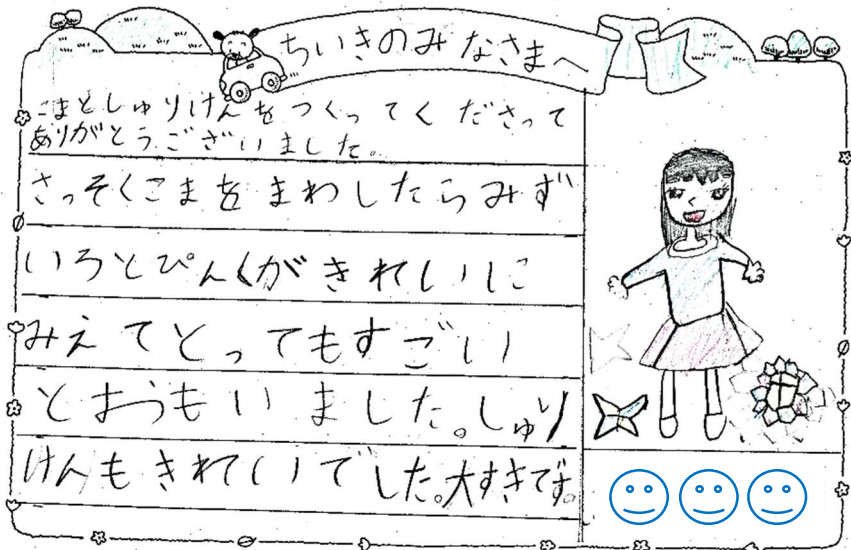 ちいきのみなさまへ
こまとしゅりけんをつくってくださって
ありがとうございました。
さっそくこまをまわしたらみず
いろとぴんくがきれいに
みえてとってもすごい
とおうもいました。しゅり
けんもきれいでした。大すきです。